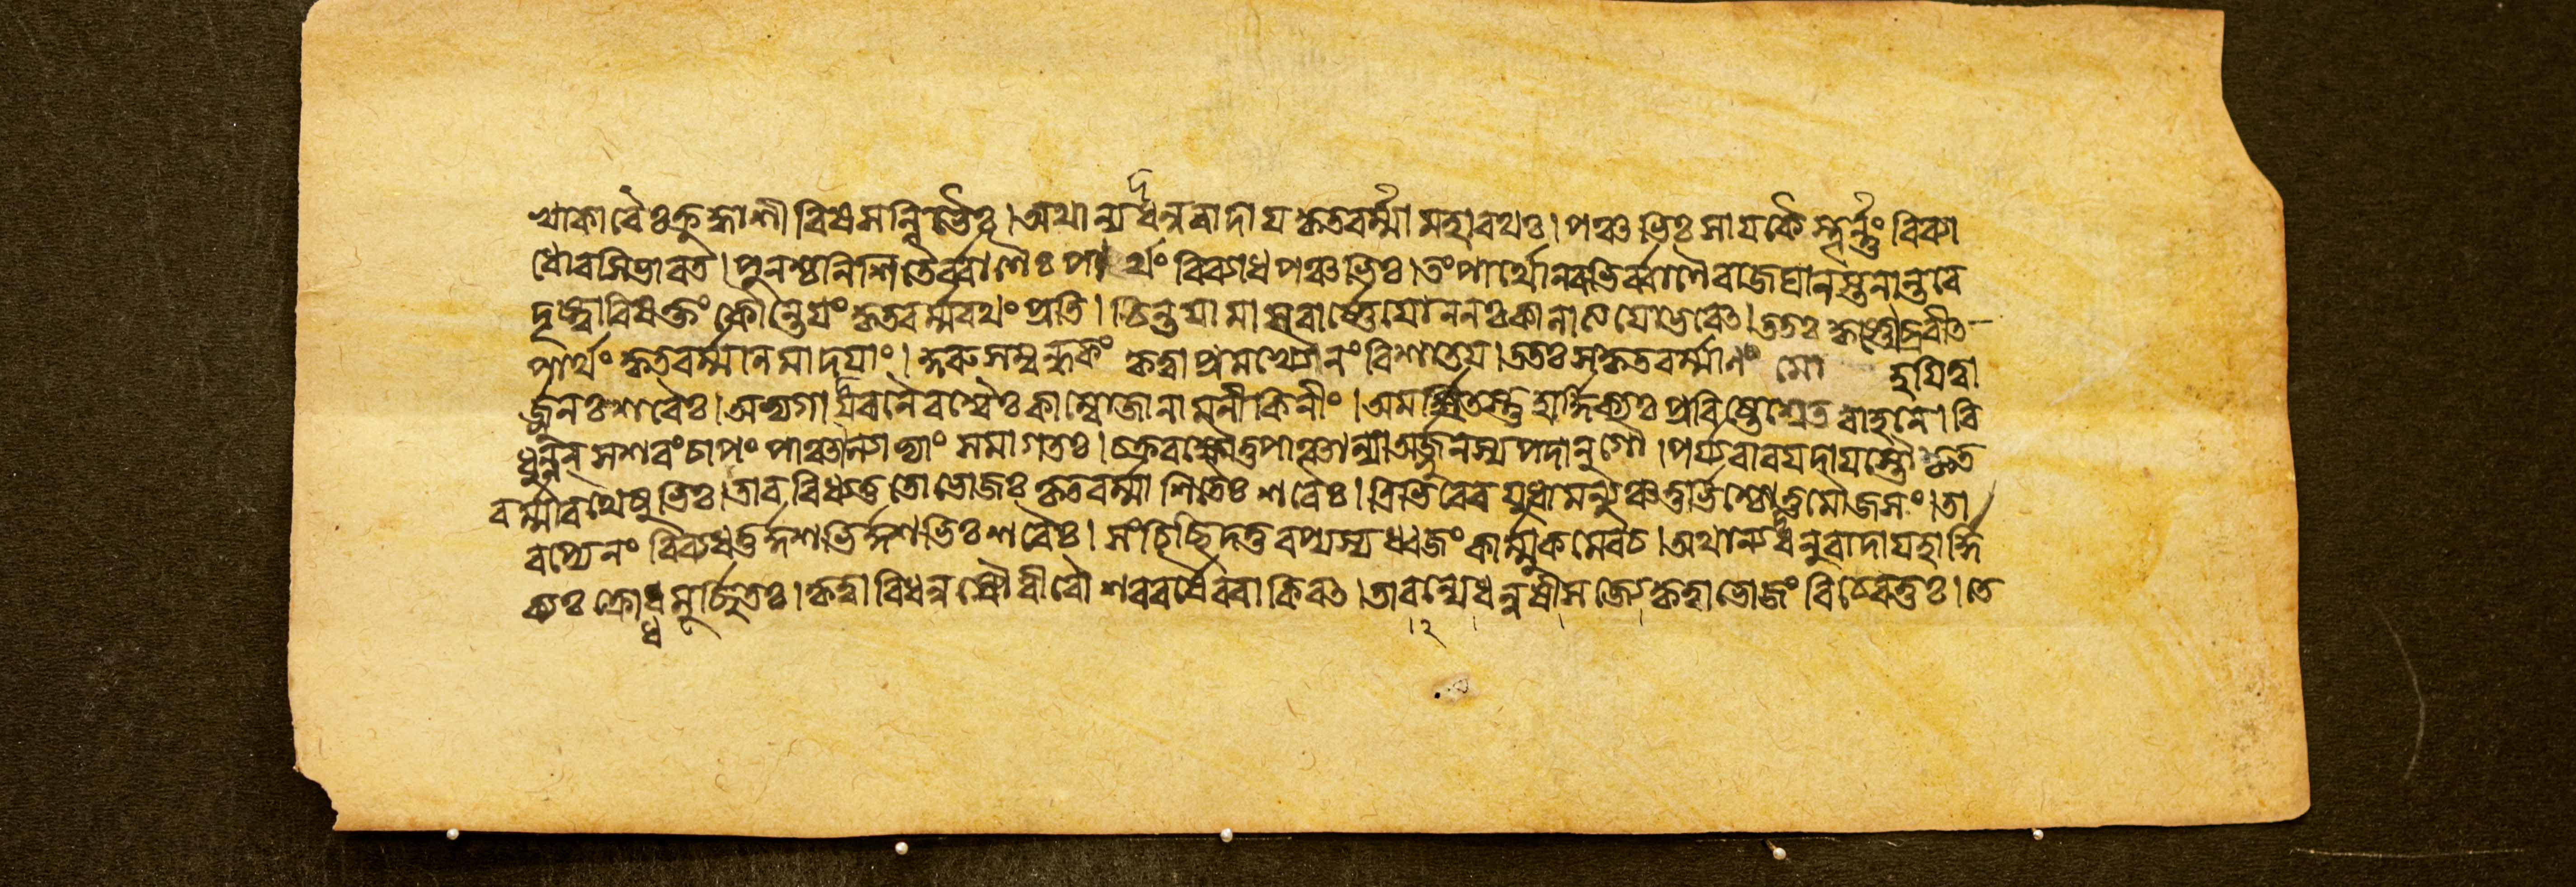 খাকাৰৈঃ ক্রুদ্ধাশীবিষসন্নিভৈঃ। অথান্যদ্ধনুৰাদায কৃতবর্ম্মা মহাৰথঃ। পঞ্চভিঃ সাযকৈস্তূর্ন্নং বিব্যা
ধোৰসি ভাৰত। পুনশ্চ নিশিতৈর্ব্বাণৈঃ পার্থং বিব্যাধ পঞ্চভিঃ। তং পার্থো নবভির্ব্বাণৈৰাজঘান স্তনান্তৰে
দৃষ্ট্বা বিষক্তং কৌন্তেযং কৃতবর্ম্মৰথং প্রতি। চিন্তযামাস বার্ষ্ণেযো ন নঃ কালাত্যযো ভবেৎ। ততঃ কৃষ্ণোব্রবীৎ
পার্থং কৃতবর্ম্মানি মা দযাং। কুৰু সম্বন্ধকং কৃত্বা প্রমথ্যৈনং বিশাতয। ততঃ স কৃতবর্ম্মাণং মোহযিত্বা
র্জ্জুনঃ শৰৈঃ। অভ্যগাৎ জবনৈৰশ্বৈঃ কাম্বোজানামনীকিনীং। অমর্ষিতস্তু হার্দ্দিক্যঃ প্রবিষ্টে শ্বেতবাহনে। বি
ধুন্বন্ সশৰং চাপং পাঞ্চাল্যাভ্যাং সমাগতঃ। চক্রৰক্ষৌ তু পাঞ্চাল্যা অর্জ্জুনস্য পদানুগৌ। পর্য্যবাৰযদাযস্তৌ কৃত
বর্ম্মা ৰথেষুভিঃ। তাববিধ্যত্ততো ভোজঃ কৃতবর্ম্মা শিতৈঃ শৰৈঃ। ত্রিভিৰেব যুধামন্যুং চতুর্ভিশ্চোত্তমৌজসং। তা
বপ্যেনং বিব্যধতুর্দ্দশভির্দ্দশভিঃ শৰৈঃ। সংচিচ্ছিদতুৰপ্যস্য ধ্বজং কার্ম্মুকমেব চ। অথান্যদ্ধনুৰাদায হার্দ্দি
ক্যঃ ক্রোধমূর্চ্ছিতঃ। কৃত্বা বিধনুষৌ বীৰৌ শৰবর্ষৈৰবাকিৰৎ। তাবন্যে ধনুষী সজ্যে কৃত্বা ভোজং বিজেঘ্নতুঃ। তে